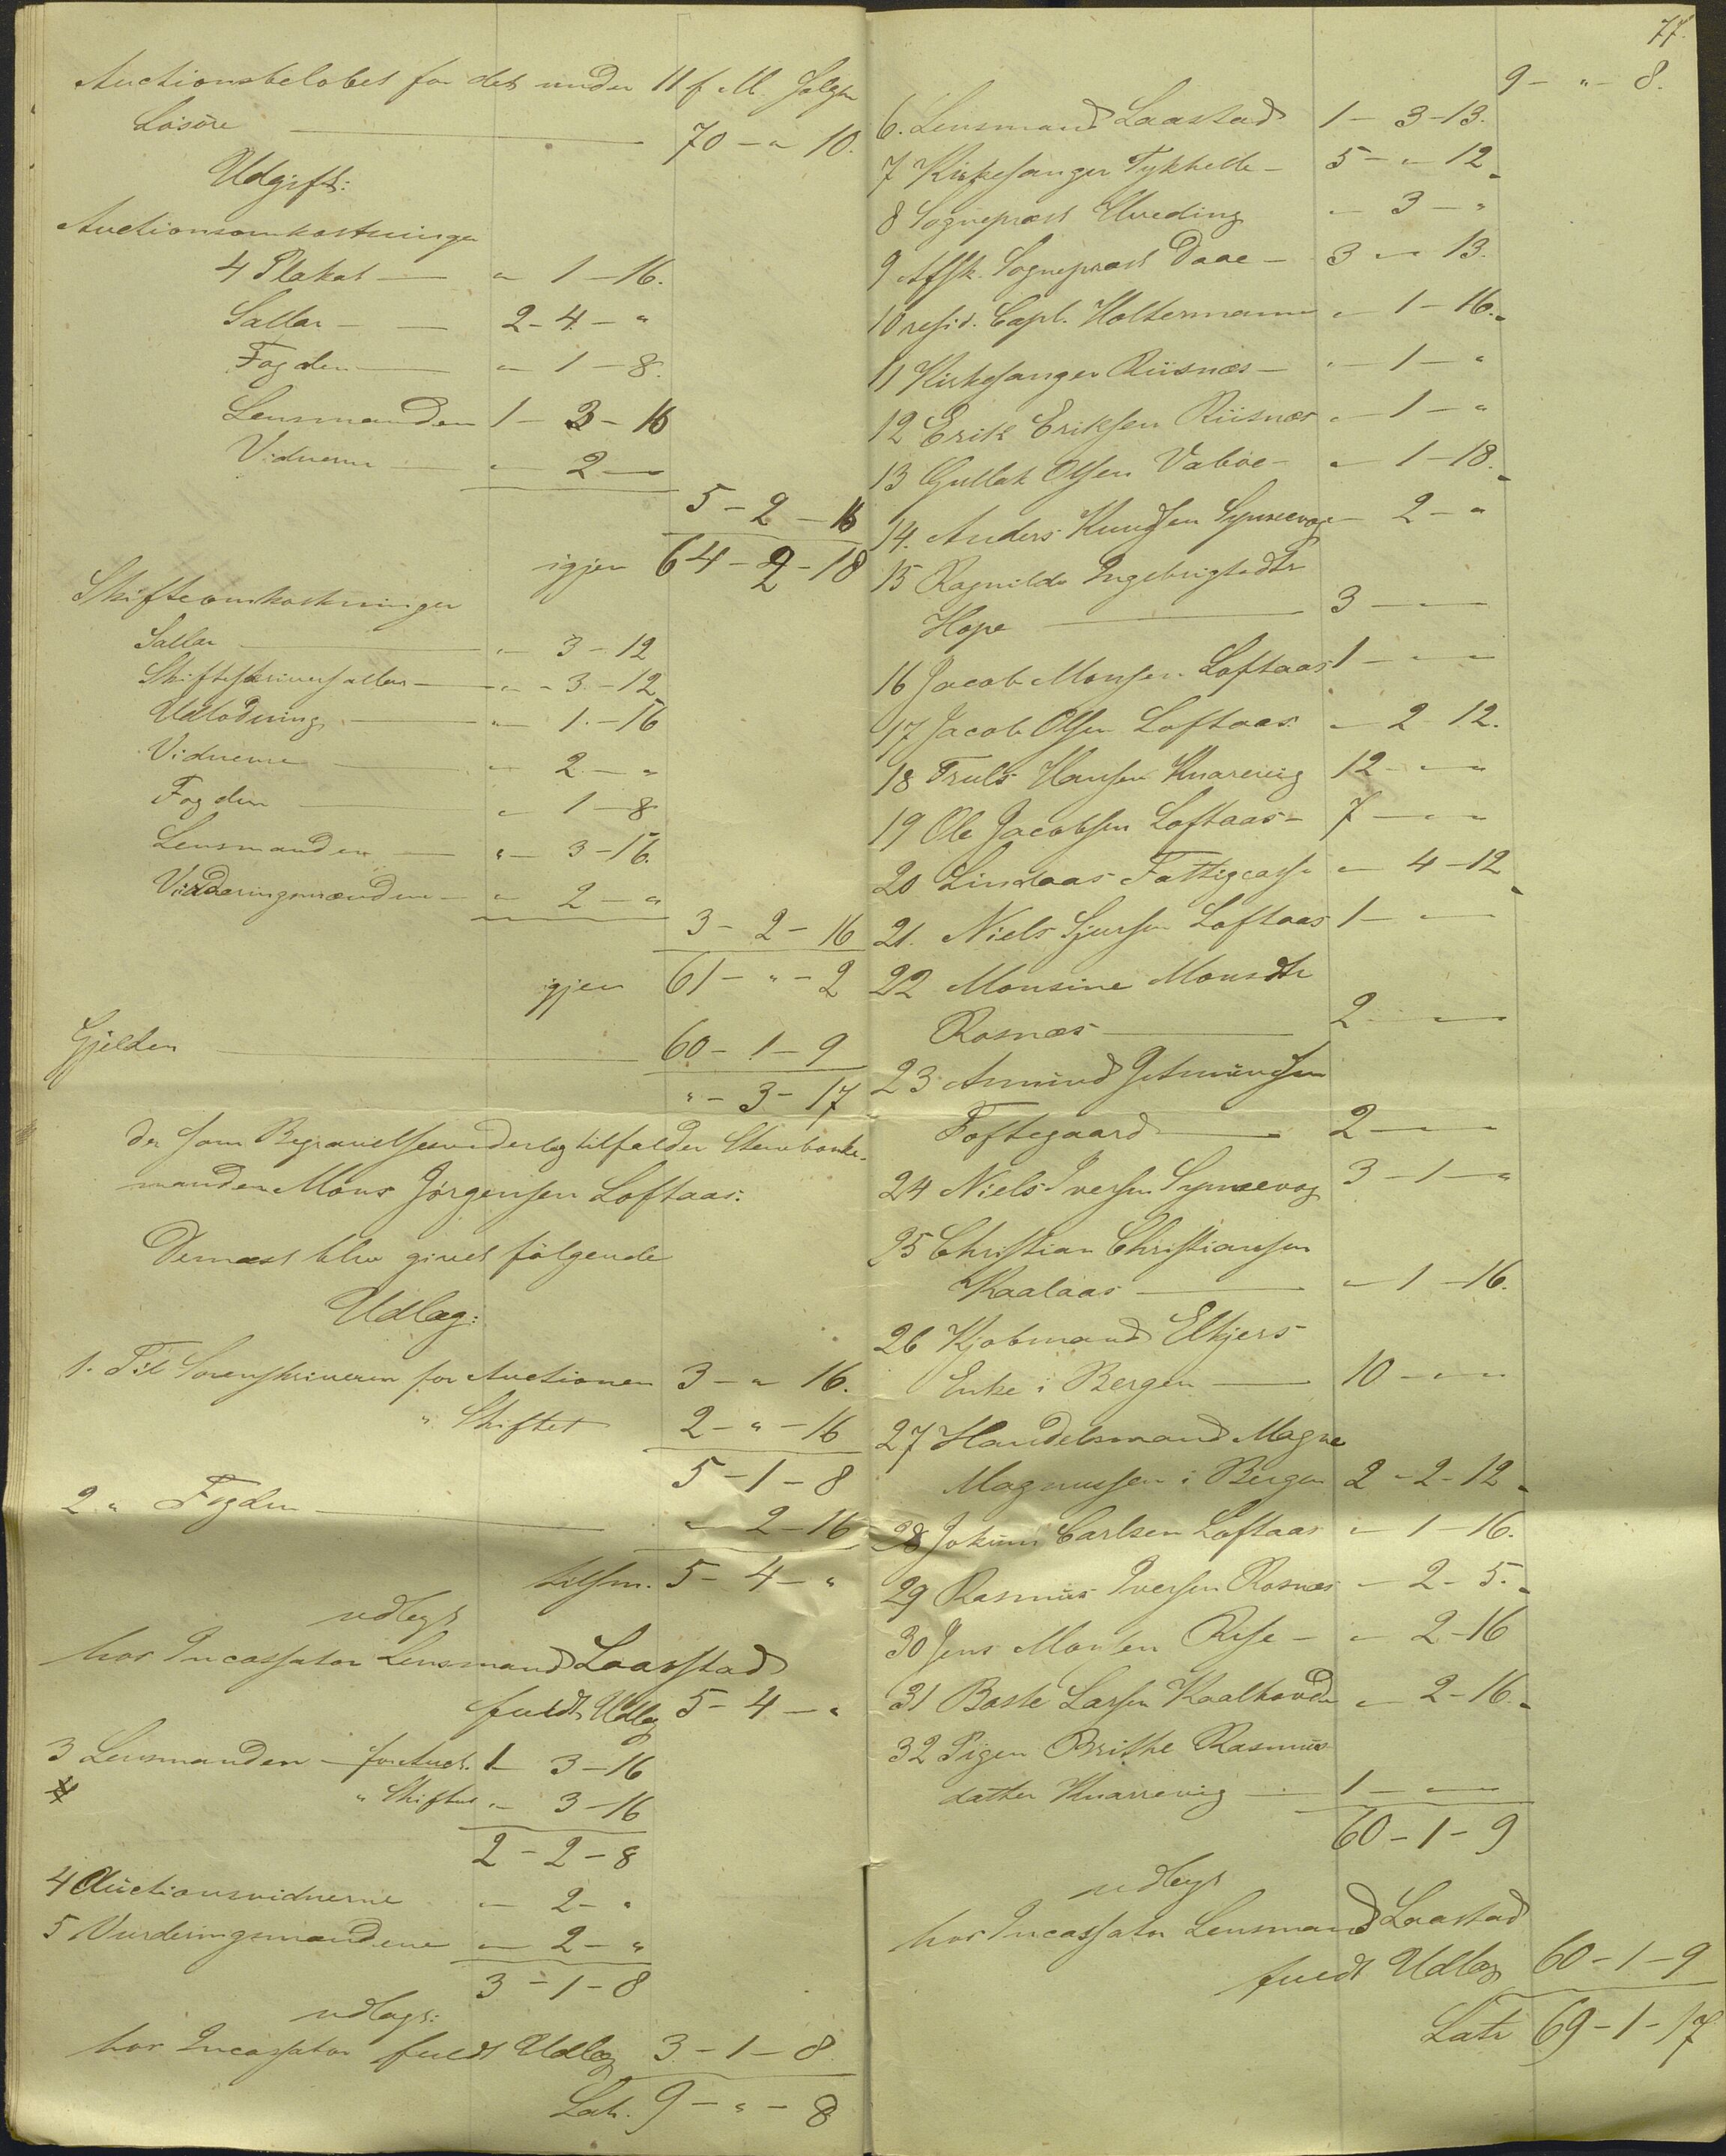 Auctionsbeløbet for det under 11 f. M. solgte
Løsøre 70 - " 10.
Udgift:
Auctionsomkostninger
4 Plakat " 1 - 16.
Sallar 2 - 4 - "
Fogden " 1 - 8.
Lensmanden 1 - 3 - 16
Vidnerne " 2 -
5 - 2 - 16
igjen 64 - 2 - 18
Skifteomkostninger
Sallar " 3 - 12
Skifteskriversallar " - 3 - 12
Udlodning " 1 - 16
Vidnerne " 2 - "
Fogden " 1 - 8
Lensmanden " 3 - 16.
Vurderingsmændene " 2 - "
3 - 2 - 16
igjen 61 - " - 2
Gjelden 60 - 1 - 9
" - 3 - 17
der som Begravelsesvederlag tilfalder Stervboets
manden Mons Jørgensen Loftaas.
Dernæst blev givet følgende
Udlæg:
1. Til Sorenskriveren for Auctionen 3 - " 16.
" Skiftet 2 - " - 16
5 - 1 - 8
2 " Fogden " 2 - 16
tilsm. 5 - 4 - "
udlagt
hos Incassator Lensmand Laastad
fuldt Udlæg 5 - 4 - "
3 Lensmanden for Auct. 1 - 3 - 16
" Skiftet " 3 - 16
2 - 2 - 8
4 Auctionsvidnerne " 2 - "
5 Vurderingsmændene " 2 - "
3 - 1 - 8
udlagt:
hos Incassator fuldt Udlæg 3 - 1 - 8
Lat. 9 - " - 8
77.
9 - " - 8.
6. Lensmand Laastad 1 - 3 - 13.
7 Kirkesanger Tykhelle 5 - " 12
8 Sognepræst Hveding " 3 - "
9 Afsk. Sognepræst Daae 3 - " 13.
10 resid. Capl. Holtermann " 1 - 16.
11 Kirkesanger Riisnæs " 1 - "
12 Erik Eriksen Riisnæs " 1 - "
13 Gullak Olsen Vabøe " 1 - 18.
14. Anders Knudsen Synnevog 2 - "
15 Ragnilde Ingebrigtsdtr
Hope 3 - "
16 Jacob Monsen Loftaas 1 - " -
17 Jacob Olsen Loftaas " 2 12.
18 Truls Hansen Knarrevig 12 - "
19 Ole Jacobsen Loftaas 7 - "
20 Lindaas Fattigcasse " 4 - 12
21. Niels Sjursen Loftaas 1 - "
22 Monsine Monsdtr
Rosnæs 2 - "
23 Amund Amundsen
Toftegaard 2 - "
24 Niels Iversen Synnevog 3 - 1 - "
25 Christian Christiansen
Kaalaas " 1 - 16.
26 Kjøbmand Elkjers
Enke i Bergen 10 - "
27 Handelsmand Magne
Magnussen i Bergen 2 - 2 - 12
28 Jokum Carlsen Loftaas " 1 - 16.
29 Rasmus Iversen Rosnæs " 2 - 5.
30 Jens Monsen Rise " 2 - 16
31 Baste Larsen Kaalhovde " 2 - 16.
32 Pigen Brithe Rasmus
datter Knarrevig 1 - "
60 - 1 - 9
udlagt
hos Incassator Lensmand Laastad
fuldt Udlæg 60 - 1 - 9
Latr 69 - 1 - 17